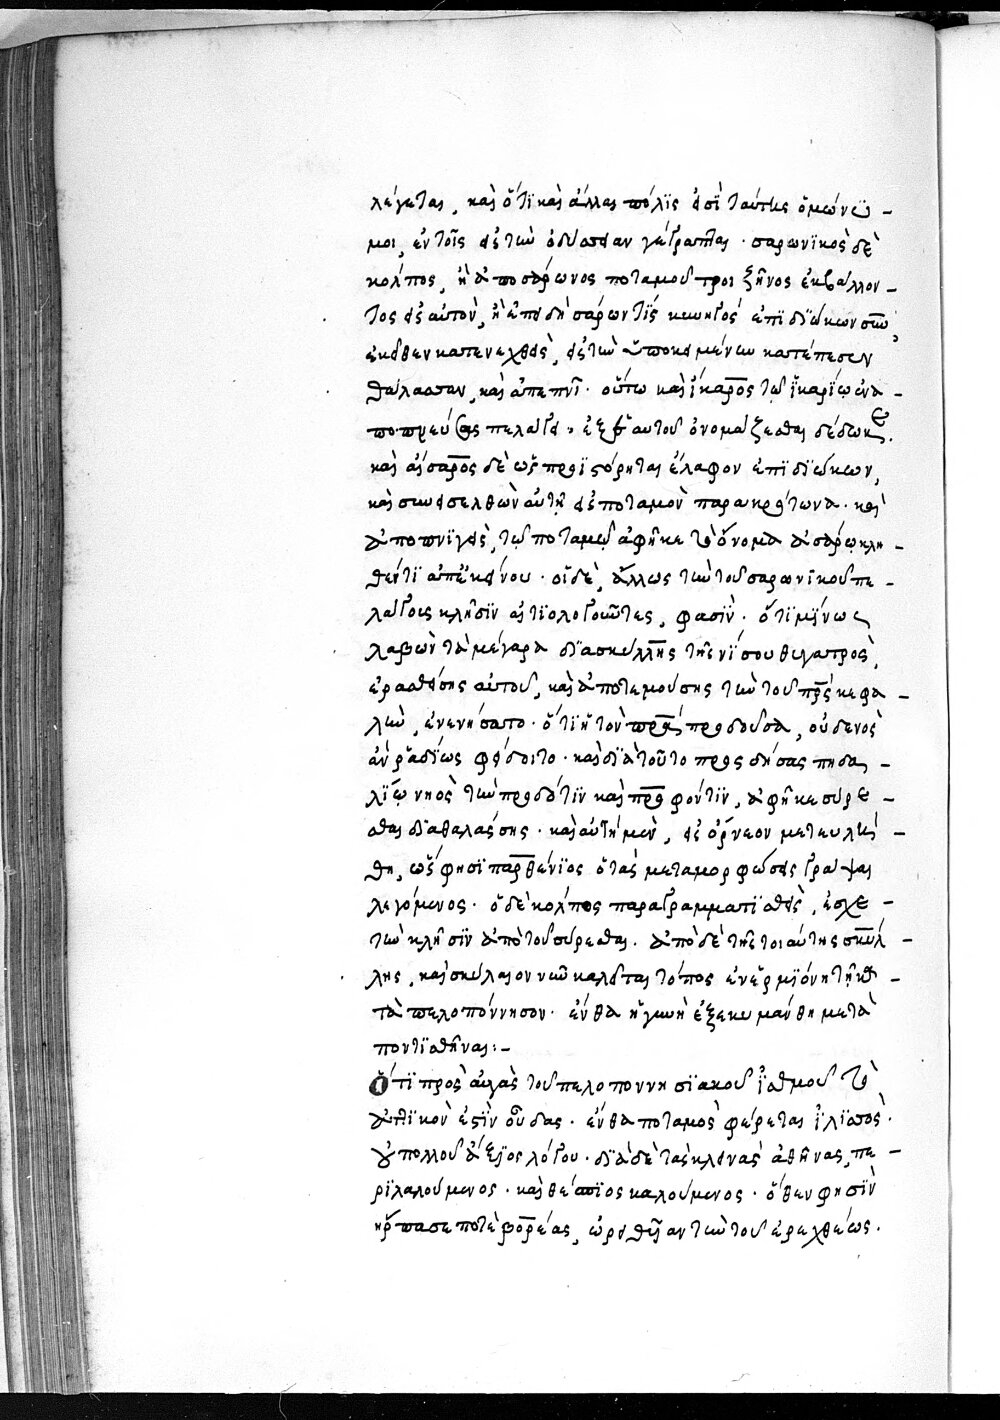 λέγεται, καὶ ὅτι καὶ ἄλλαι πόλις εἰσὶ ταύτης ὁμώνυ-
μοι, ἐν τοῖς εἰς τὴν ὀδύσσειαν γέγραπται · σαρωνικὸς δὲ
κόλπος, ἢ ἀπὸ σάρωνος ποταμοῦ τροιζῆνος ἐκβάλλον-
τος εἰς αὐτὸν, ἢ ἐπειδὴ σάρων τὶς κυνηγὸς ἐπιδιώκων σῦν,
ἐκεῖθεν κατενεχθεὶς, εἰς τὴν ὑποκειμένην κατέπεσεν
θάλασσαν, καὶ ἀπεπνίγη · οὕτω καὶ ἴκαρος τῷ ἰκαρίῳ ἐνα-
ποπνεύσας πελάγει · ἐξ αὐτοῦ ὀνομάζεσθαι δέδωκε.
καὶ αἴσαρος δὲ ὡς προϊστόρηται ἔλαφον ἐπιδιώκων,
καὶ συνεισελθὼν αὐτῇ εἰς ποταμὸν παρὰ κρότωνα · καὶ
ἀποπνιγεὶς, τῷ ποταμῷ ἀφῆκε τὸ ὄνομα αἰσάρῳ κλη-
θέντι ἀπ' ἐκείνου · οἱ δὲ, ἄλλως τὴν τοῦ σαρωνικοῦ πε-
λάγους κλῆσιν αἰτιολογοῦντες, φασὶν · ὅτι μίνως
λαβὼν τὰ μέγαρα διὰ σκύλλης τῆς νίσου θυγατρὸς,
ἐρασθείσης αὐτοῦ, καὶ ἀποτεμούσης τὴν τοῦ πρς κεφα-
λὴν, ἐνενήσατο · ὅτι ἡ τὸν πρα προδοῦσα, οὐδενὸς
ἂν ῥαδίως φείσοιτο · καὶ διὰ τοῦτο προσδήσας πηδα-
λίῳ νηὸς τὴν προδότιν καὶ πρ φόντιν, ἀφῆκε σύρε-
σθαι διὰ θαλάσσης · καὶ αὐτὴ μὲν, εἰς ὄρνεον μετεβλή-
θη, ὥς φησι παρθένιος ὁ τὰς μεταμορφώσεις γράψαι
λεγόμενος · ὁ δὲ κόλπος παραγραμματισθεὶς, ἔσχε
τὴν κλῆσιν ἀπὸ τοῦ σύρεσθαι. ἀπὸ δὲ τῆς τοιαύτης σκύλ-
λης, καὶ σκύλαιον νῦν καλεῖται τόπος ἐν ἑρμιόνῃ τῇ κα-
τὰ πελοπόννησον · ἔνθα ἡ γυνὴ ἐξεκυμάνθη μετα-
ποντισθῆναι :-
Ὅτι πρὸς αὐγὰς τοῦ πελοποννησιακοῦ ἰσθμοῦ τὸ
ἀττικὸν ἐστὶν οὖδας · ἔνθα ποταμὸς φέρεται ἰλισσὸς ·
οὐ πολλοῦ ἄξιος λόγου · διὰ δὲ τὰς κλεινὰς ἀθήνας, πε-
ριλαλούμενος · καὶ θεσπέσιος καλούμενος · ὅθεν φησὶν
ἥρπασέ ποτε βορέας, ὠρείθυιαν τὴν τοῦ ἐρεχθέως.